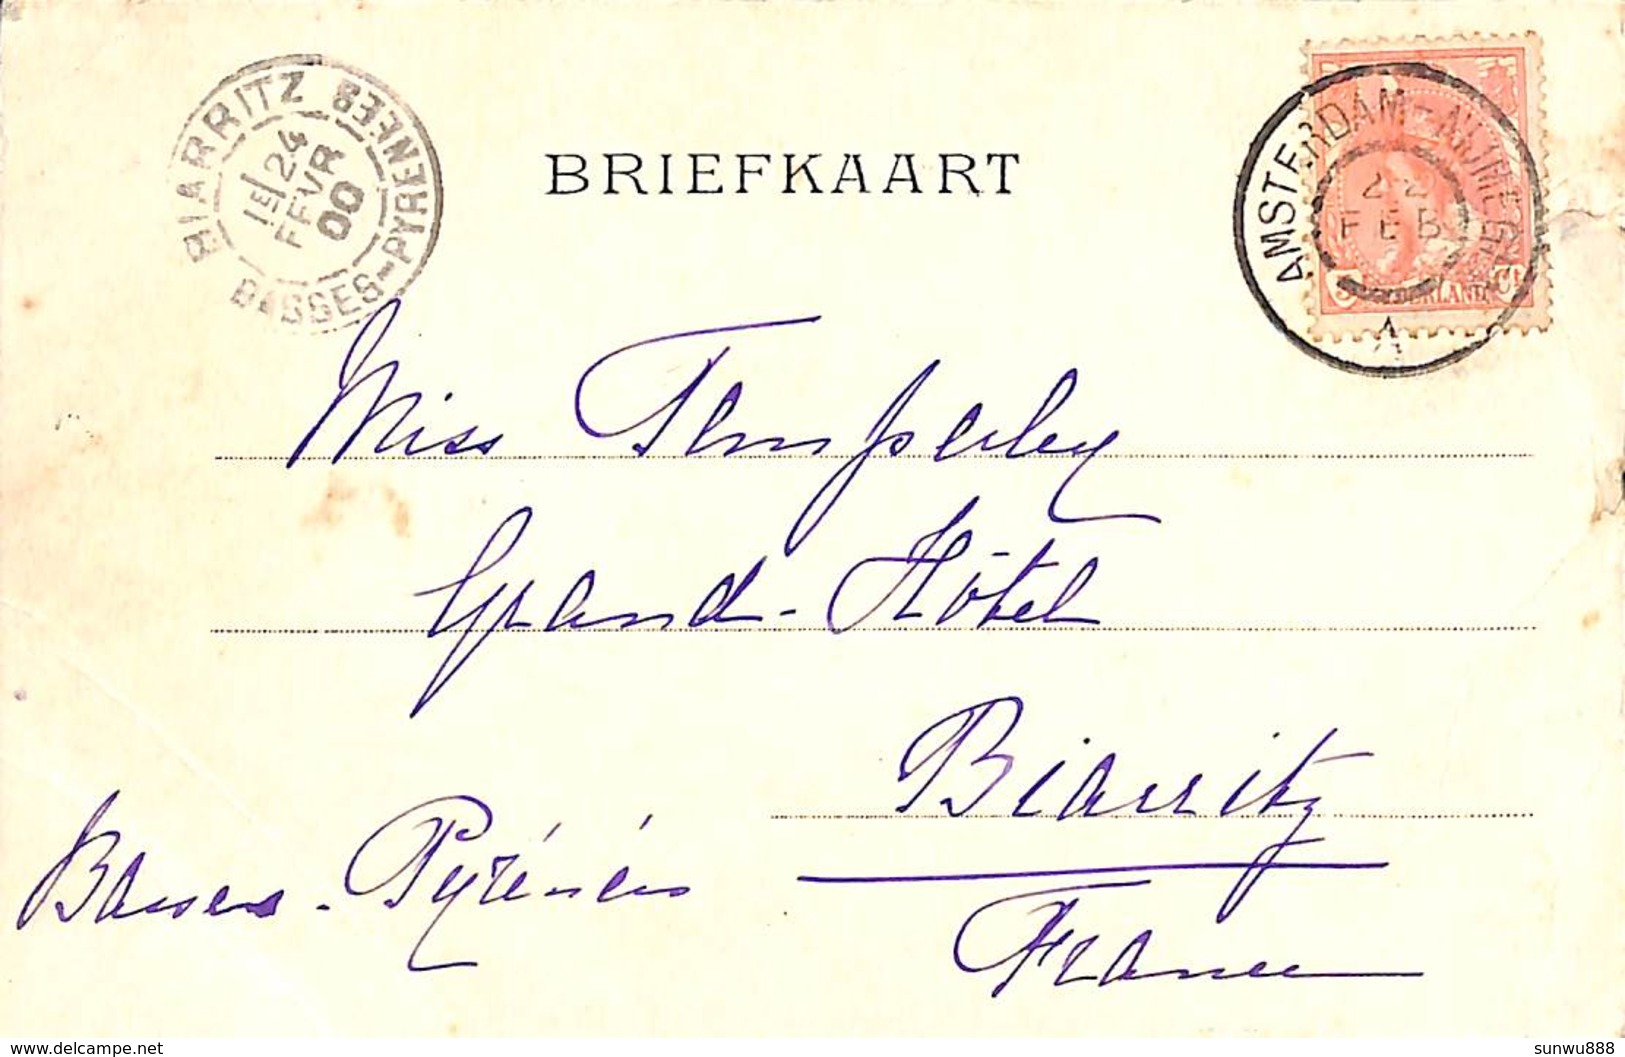 BIARRITZ
BASSES-PYRENEES
1E 24
FEVR
00
BRIEFKAART
AMSTERDAM-
22
FEB
A
5
NEDERLAND
Miss Temperley
Grand-Hôtel
Biarritz
Basses-Pyrénées
France
delcampe.net
sunwu888